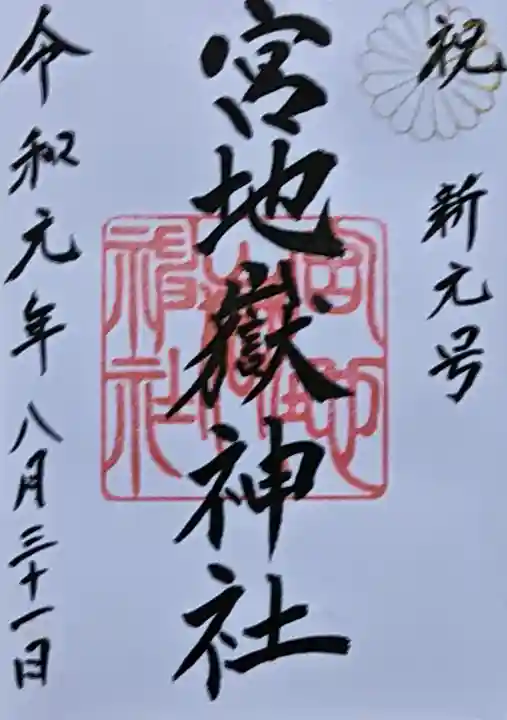 祝 新元号
宮地嶽神社
宮地嶽神社
令和元年八月三十一日